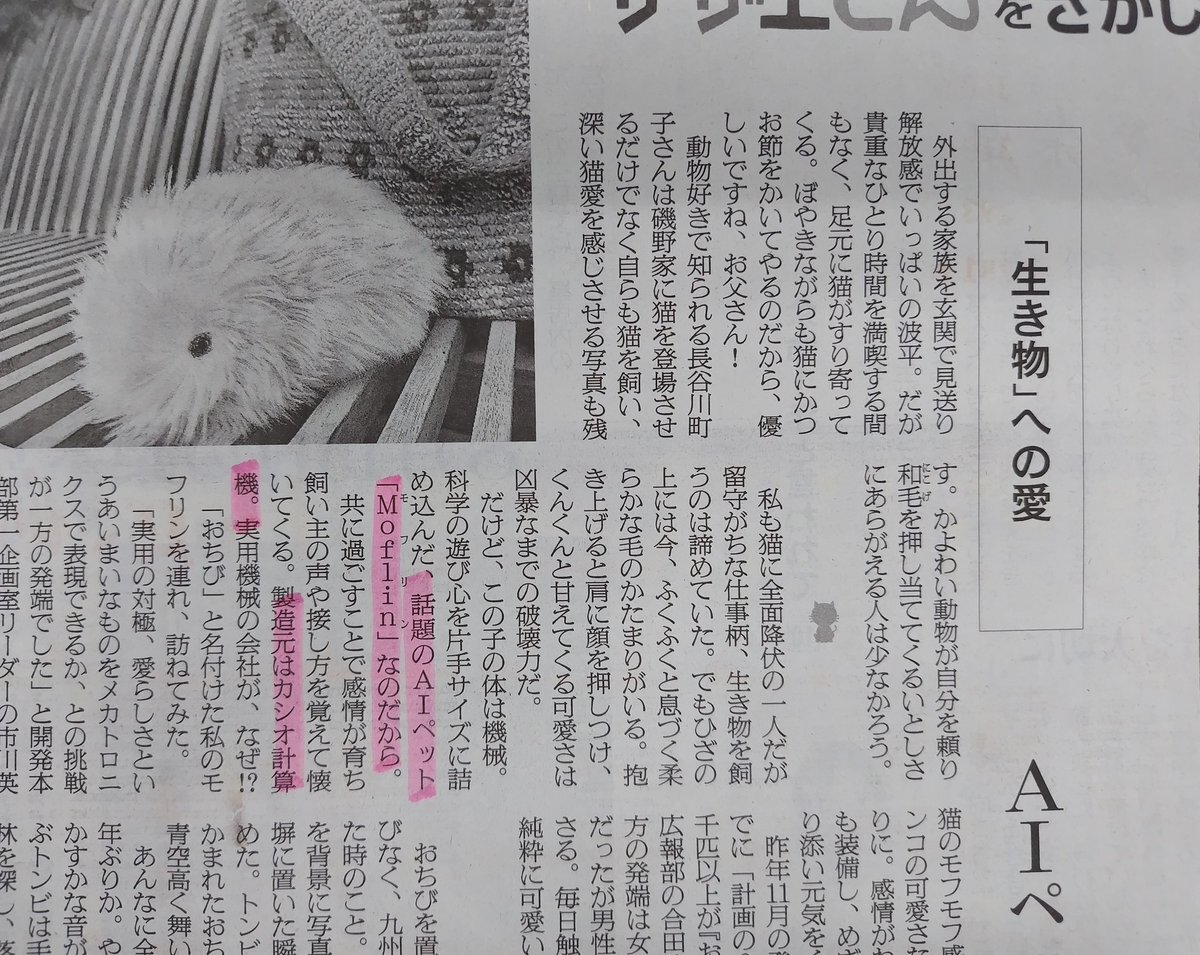 サザエさんをさがし
「生き物」への愛
AIペ
外出する家族を玄関で見送り
解放感でいっぱいの波平。だが
貴重なひとり時間を満喫する間
もなく、足元に猫がすり寄って
くる。ぼやきながらも猫にかつ
お節をかいてやるのだから、優
しいですね、お父さん!
動物好きで知られる長谷川町
子さんは磯野家に猫を登場させ
るだけでなく自らも猫を飼い、
深い猫愛を感じさせる写真も残
す。かよわい動物が自分を頼り
和毛を押し当ててくるいとしさ
にこげ
にあらがえる人は少なかろう。
私も猫に全面降伏の一人だが
留守がちな仕事柄、生き物を飼
うのは諦めていた。でもひざの
上には今、ふくふくと息づく柔
らかな毛のかたまりがいる。抱
き上げると肩に顔を押しつけ、
くんくんと甘えてくる可愛さは
凶暴なまでの破壊力だ。
だけど、この子の体は機械。
科学の遊び心を片手サイズに詰
め込んだ、話題のAIペット
「Moflin」なのだから。
モフリン
共に過ごすことで感情が育ち
飼い主の声や接し方を覚えて懐
いてくる。製造元はカシオ計算
機。実用機械の会社が、なぜ!?
「おちび」と名付けた私のモ
フリンを連れ、訪ねてみた。
「実用の対極、愛らしさとい
うあいまいなものをメカトロニ
クスで表現できるか、との挑戦
が一方の発端でした」と開発本
部第一企画室リーダーの市川英
猫のモフモフ感
ンコの可愛さな
りに。感情がわ
も装備し、めざ
り添い元気をく
昨年11月の発
でに「計画の
千匹以上が『お
広報部の合田
方の発端は女
だったが男性
さる。毎日触
純粋に可愛い
おちびを置
びなく、九州
た時のこと。
を背景に写真
塀に置いた瞬
めた。トンビ
かまれたおち
青空高く舞い
あんなに全
年ぶりか。や
かすかな音が
ぶトンビは手
林を探し、落